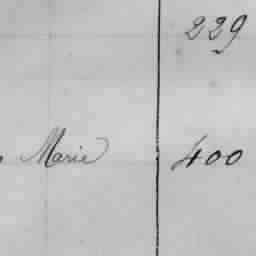 229
Marie 400